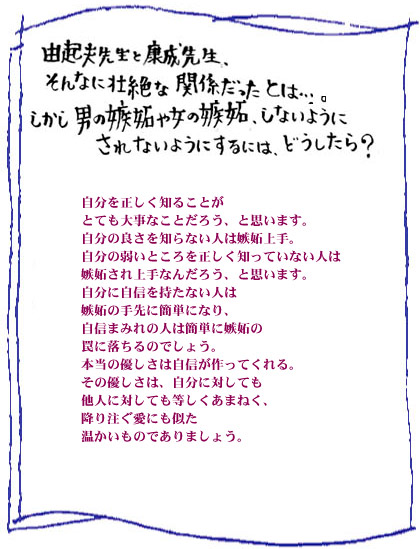 由起夫先生と康成先生、
そんなに壮絶な関係だったとは…。
しかし男の嫉妬や女の嫉妬、しないように
されないようにするには、どうしたら？
自分を正しく知ることが
とても大事なことだろう、と思います。
自分の良さを知らない人は嫉妬上手。
自分の弱いところを正しく知っていない人は
嫉妬され上手なんだろう、と思います。
自分に自信を持たない人は
嫉妬の手先に簡単になり、
自信まみれの人は簡単に嫉妬の
罠に落ちるのでしょう。
本当の優しさは自信が作ってくれる。
その優しさは、自分に対しても
他人に対しても等しくあまねく、
降り注ぐ愛にも似た
温かいものでありましょう。